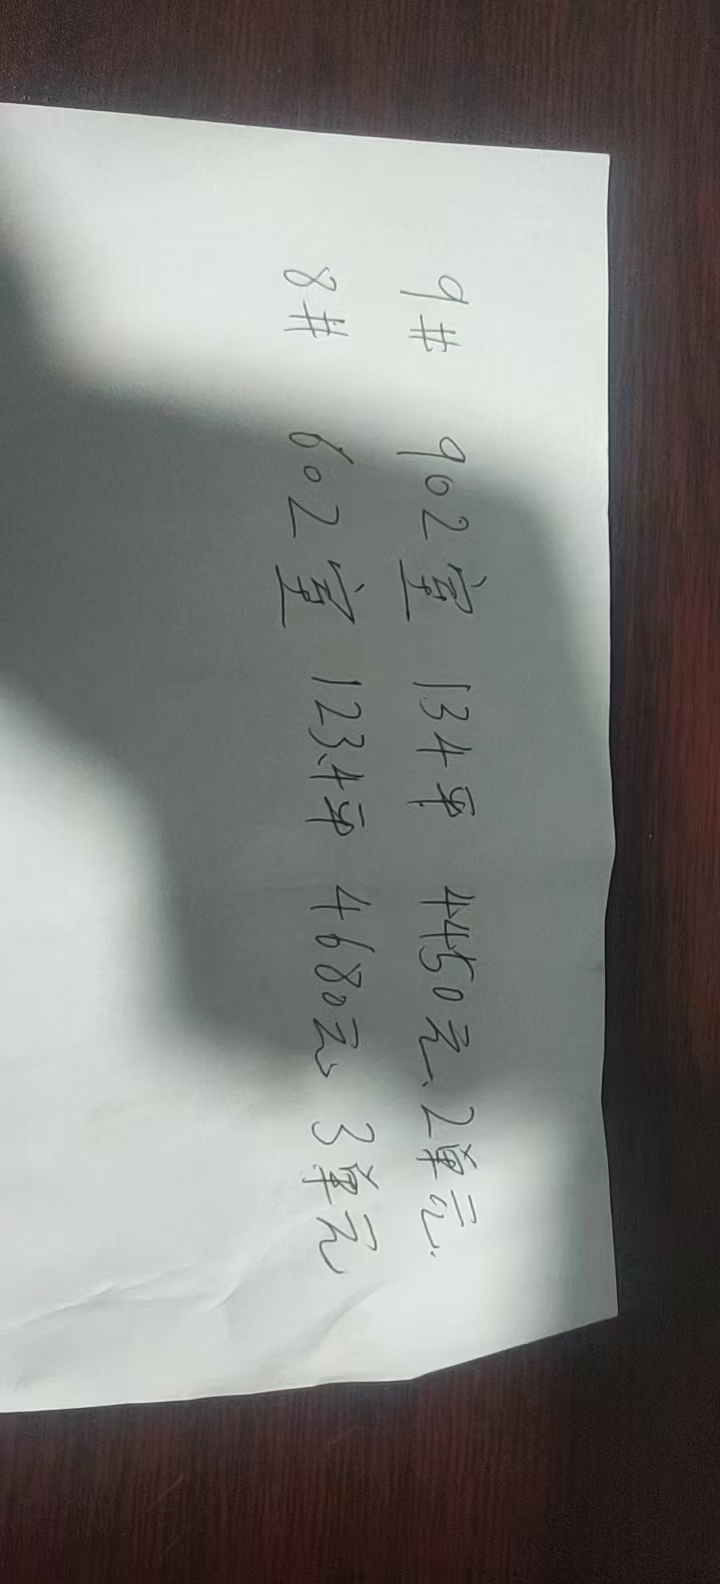 9# 902室 134平 4450元 2单元
8# 602室 123.4平 4680元 3单元